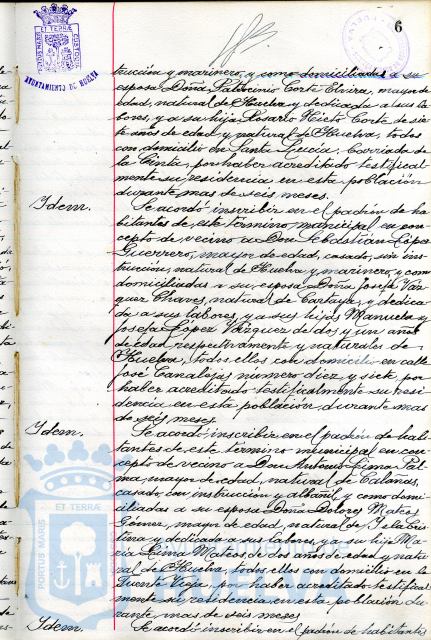 6
PORTUS MARIS ET TERRÆ CUSTODIA
AYUNTAMIENTO DE HUELVA
trucción y marinero, y como domiciliadas a su
esposa Doña Patrocinio Corte Elvira, mayor de
edad, natural de Huelva y dedicada a sus la-
bores, y a su hija Rosario Nieto Corte de sie-
te años de edad y natural de Huelva, todos
con domicilio en Santa Lucía, Barriada de
la Cinta, por haber acreditado testifical-
mente su residencia en esta población
durante mas de seis meses.
Idem.
Se acordó inscribir en el padrón de ha-
bitantes de este término municipal en con-
cepto de vecino a Don Sebastián López
Guerrero, mayor de edad, casado, sin ins-
trucción, natural de Huelva y marinero, y como
domiciliadas a su esposa Doña Josefa Váz-
quez Chaves, natural de Cartaya, y dedica-
da a sus labores, y a sus hijas Manuela y
Josefa López Vázquez de dos y un años
de edad respectivamente y naturales de
Huelva, todos ellos con domicilio en calle
José Canalejas número diez y siete, por
haber acreditado testificalmente su resi-
dencia en esta población, durante mas
de seis meses.
Idem.
Se acordó inscribir en el padrón de habi-
tantes de este término municipal en con-
cepto de vecino a Don Antonio Lima Pal-
ma, mayor de edad, natural de Calañas,
casado, con instrucción y albañil, y como domi-
ciliadas a su esposa Doña Dolores Mateos
Gómez, mayor de edad, natural de Isla Cris-
tina y dedicada a sus labores, y a su hija Ma-
ría Lima Mateos, de dos años de edad y natu-
ral de Huelva, todos ellos con domicilio en la
Fuente Vieja, por haber acreditado testifical-
mente su residencia en esta población du-
rante mas de seis meses.
Idem.
Se acordó inscribir en el padrón de habitantes
PORTUS MARIS ET TERRÆ
HUELVA